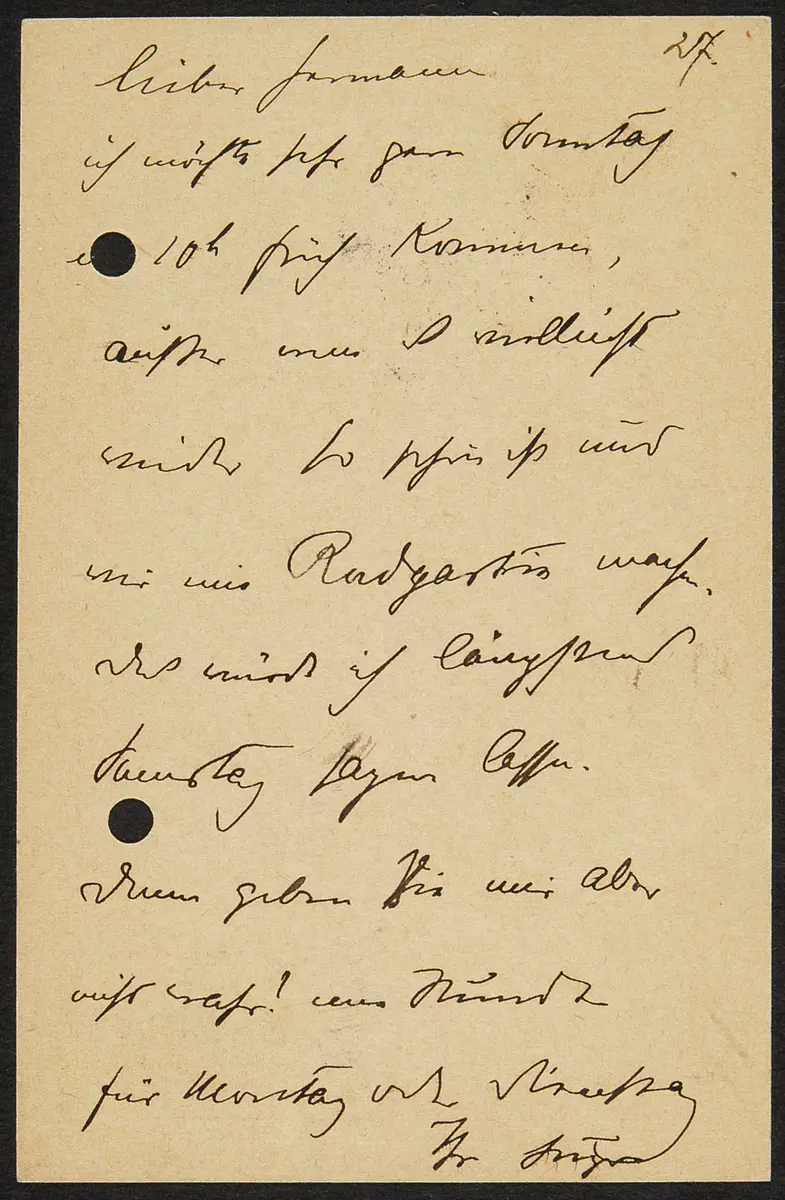 27.
lieber Hermann
ich möchte sehr gern Sonntag
um 10h früh kommen,
außer wenn es vielleicht
wieder so schön ist und
wir eine Radpartie machen.
das würde ich längstens
Samstag sagen lassen.
Dann geben Sie mir aber
nicht wahr! eine Stunde
für Montag oder Dienstag
Ihr